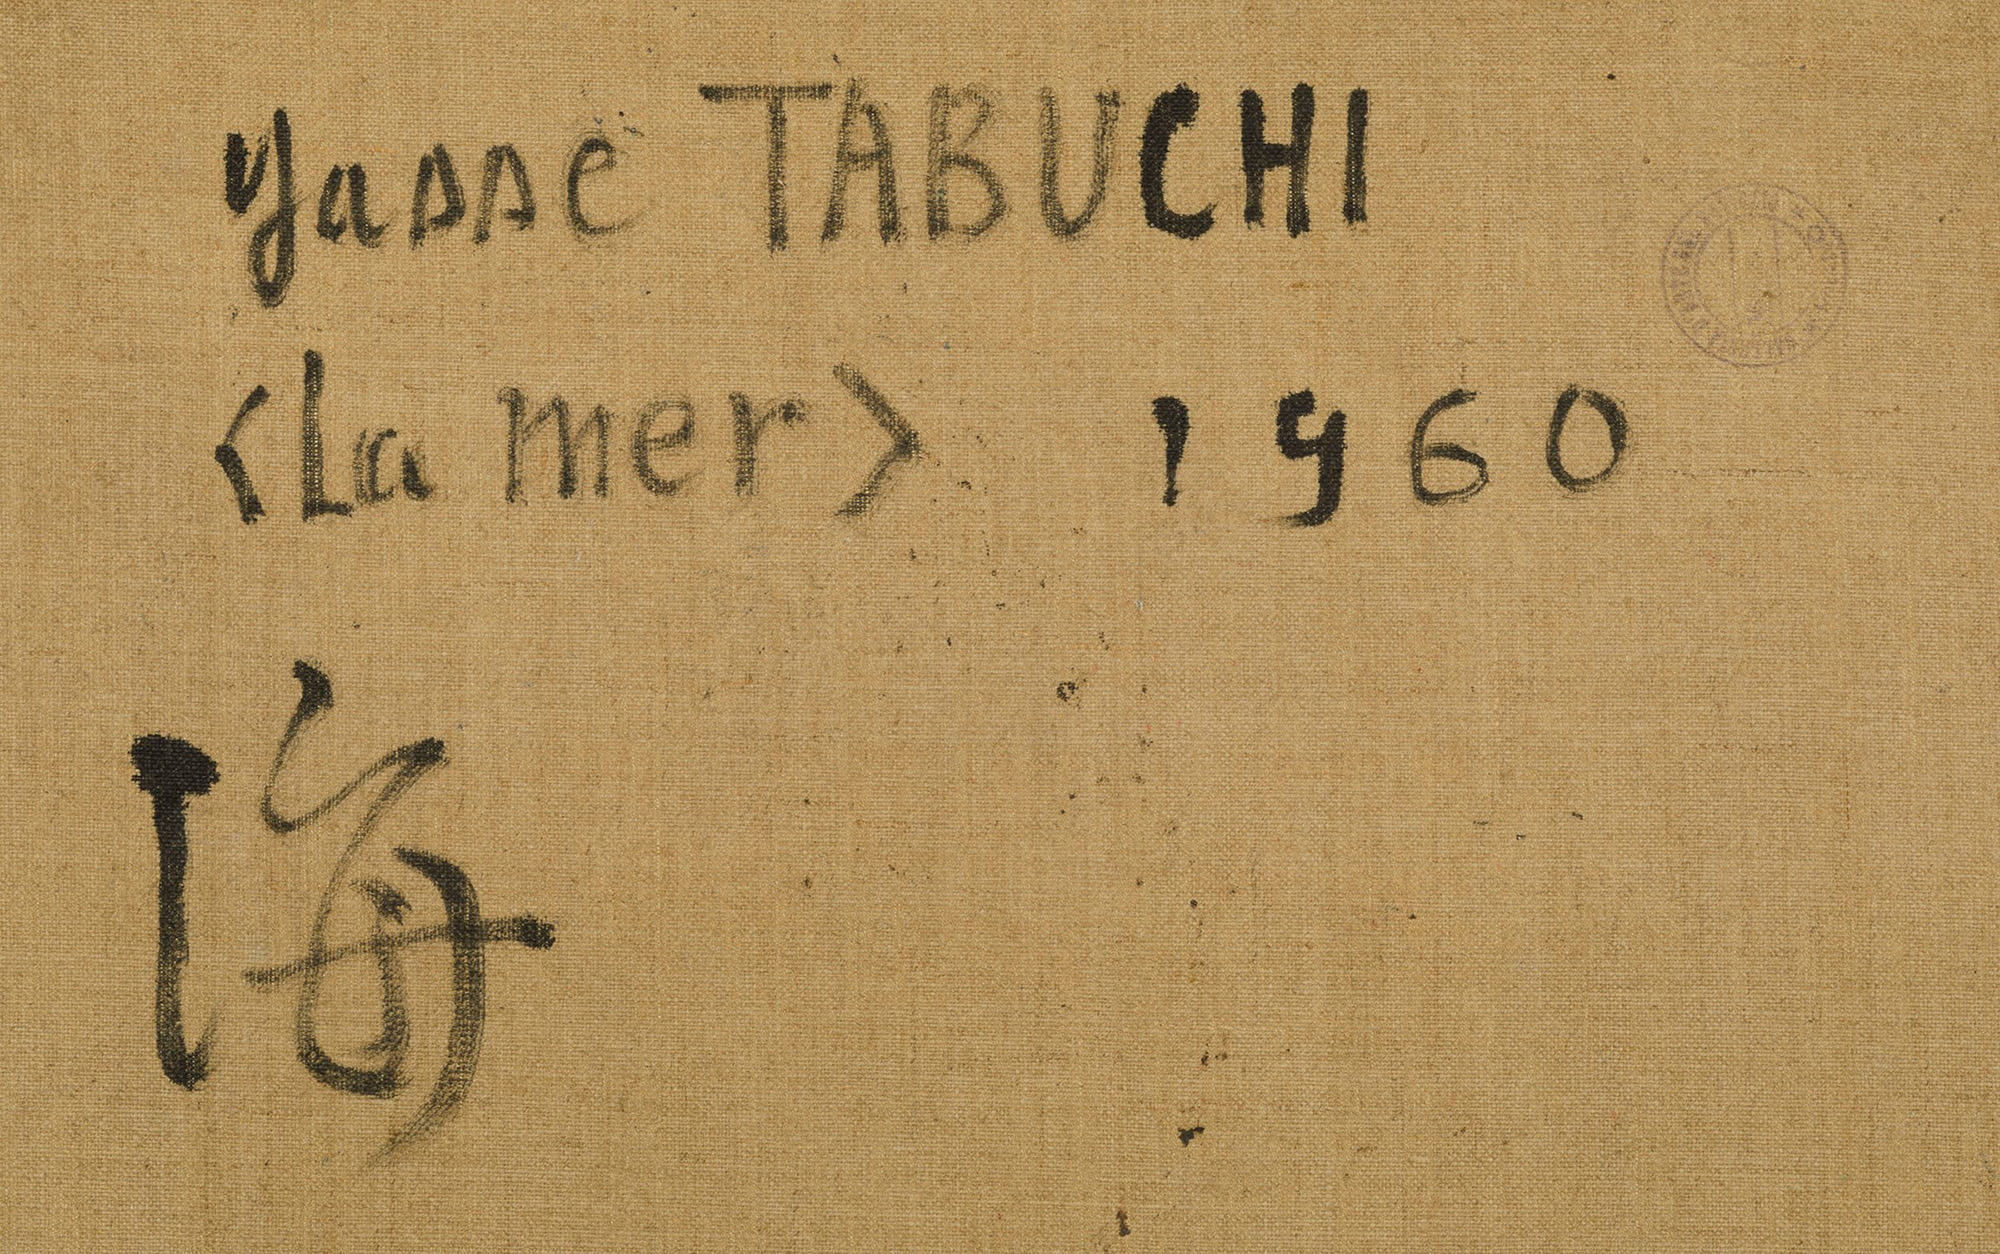 yasse TABUCHI
<La mer> 1960
海